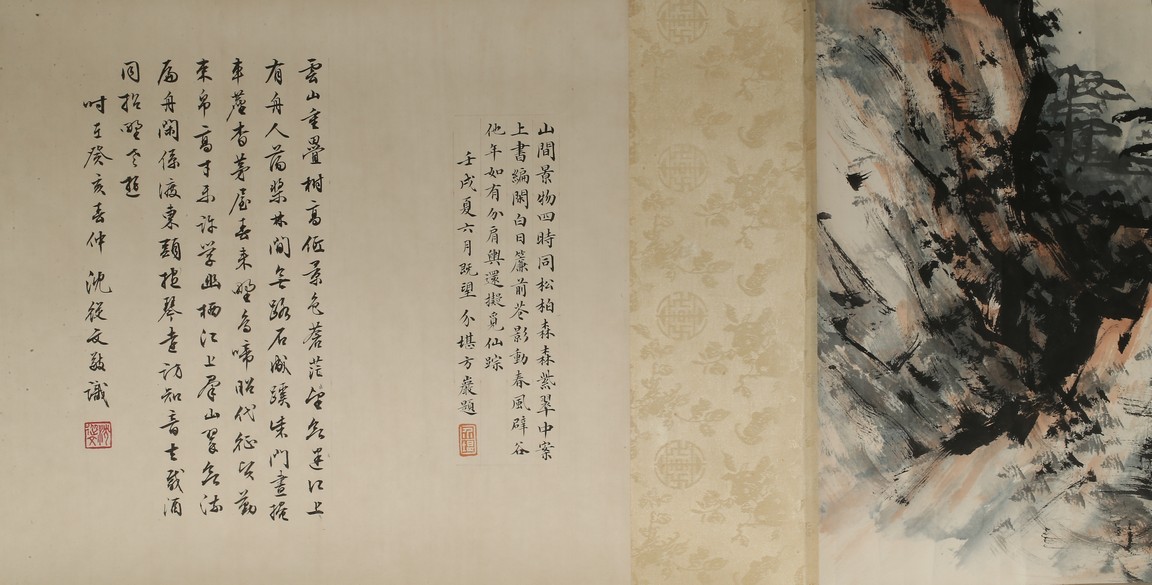 山間景物四時同松柏森森紫翠中案
上書編閑白日簾前花影動春風辟谷
他年如有分肩輿還擬覓仙踪
壬戌夏六月既望介堪方巖題
雲山重疊樹高低景色蒼茫望欲迷江上
有舟人蕩槳林間無路石成蹊柴門晝掩
車塵杳茅屋春來野鳥啼昭代征賢勤
束帛高才未許學幽栖江上群山翠欲流
扁舟閑係渡東頭抱琴童訪知音去載酒
同招野老題
時在癸亥春仲沈從文敬識